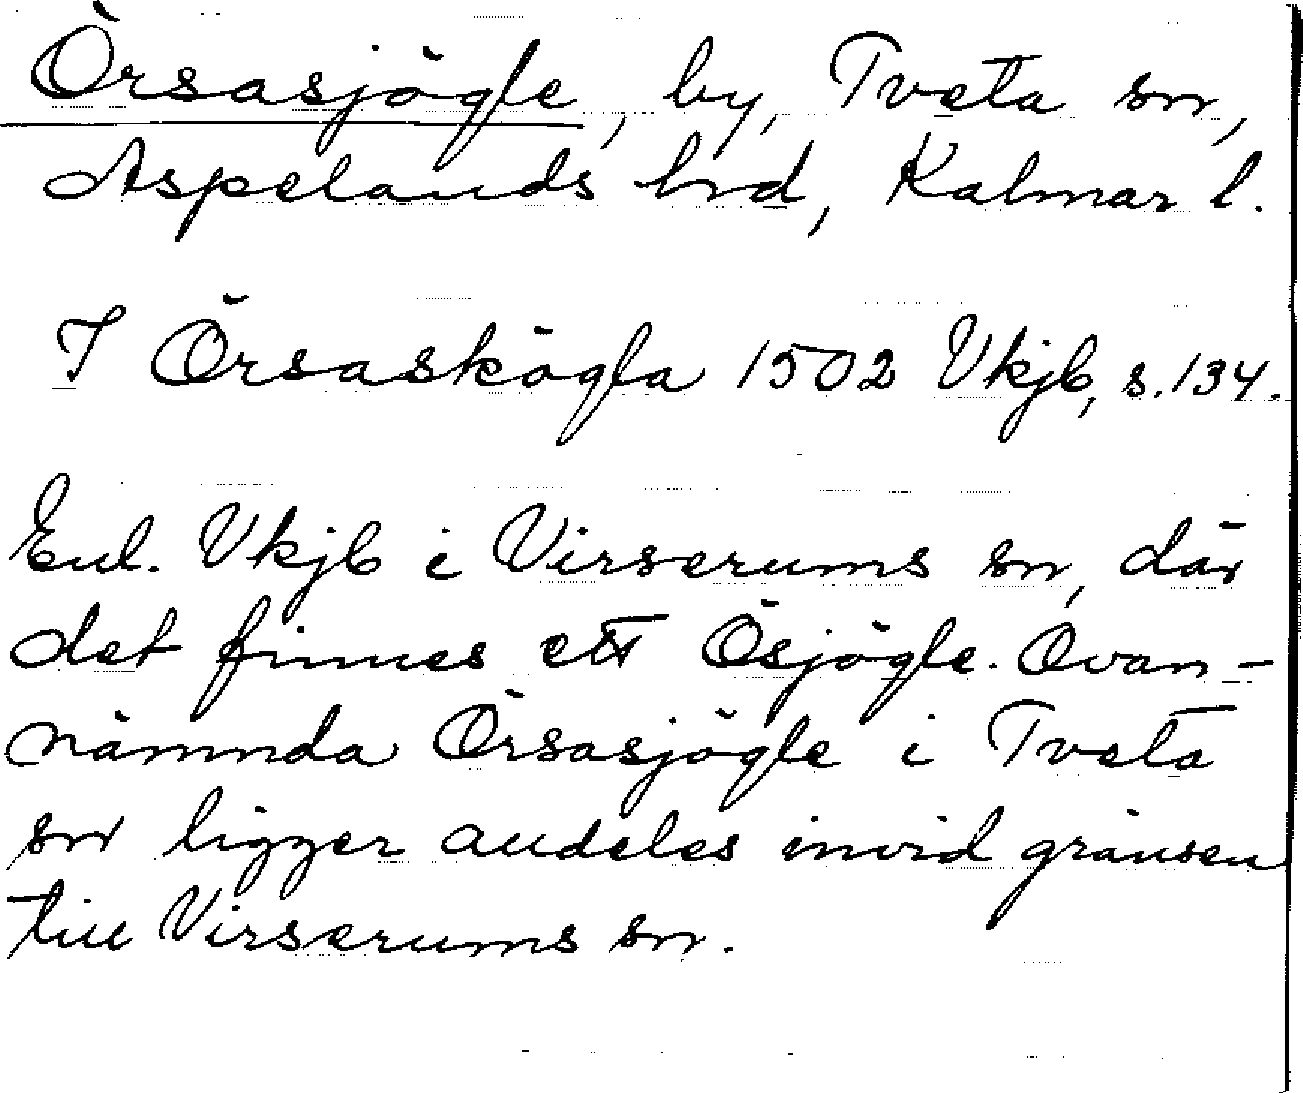 Örsasjögle, by, Tveta sn,
Aspelands hrd, Kalmar l.
I Örsaskögla 1502 Vkjb, s. 134.
Enl. Vkjb i Virserums sn, där
det finnes ett Ösjögle. Ovan-
nämnda Örsasjögle i Tveta
sn ligger alldeles invid gränsen
till Virserums sn.